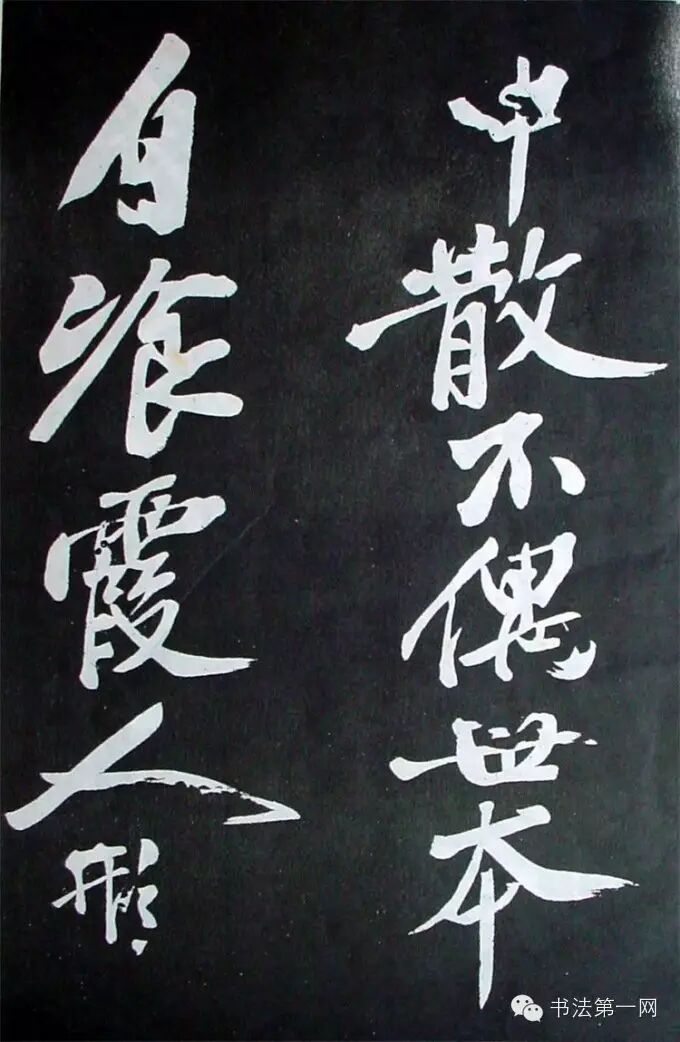 中散不偶世本
自飡霞人形
书法第一网